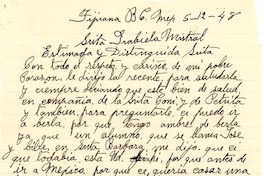 Tijuana B.C. Mep 5-12-48
Srita Grabiela Mistral
Estimada y Distinguida Srita
Con todo el respeto y cariño, de mi pobre
Corazon, le dirijo la recente, para saludarla
y ciempre deciando que este bien de salud
en compañia, de la srita Coni, y de Pelluta
y tambien, para preguntarle, ci puedo ir
a berla, por que tengo ambre de berla
ya que un alumno, que se llama José
y bibe, en Srta Barbara, me dijo, que ci
que todabia, esta Ud. aqui, por que antes de
ir a Mexico, por que es, queria casar una